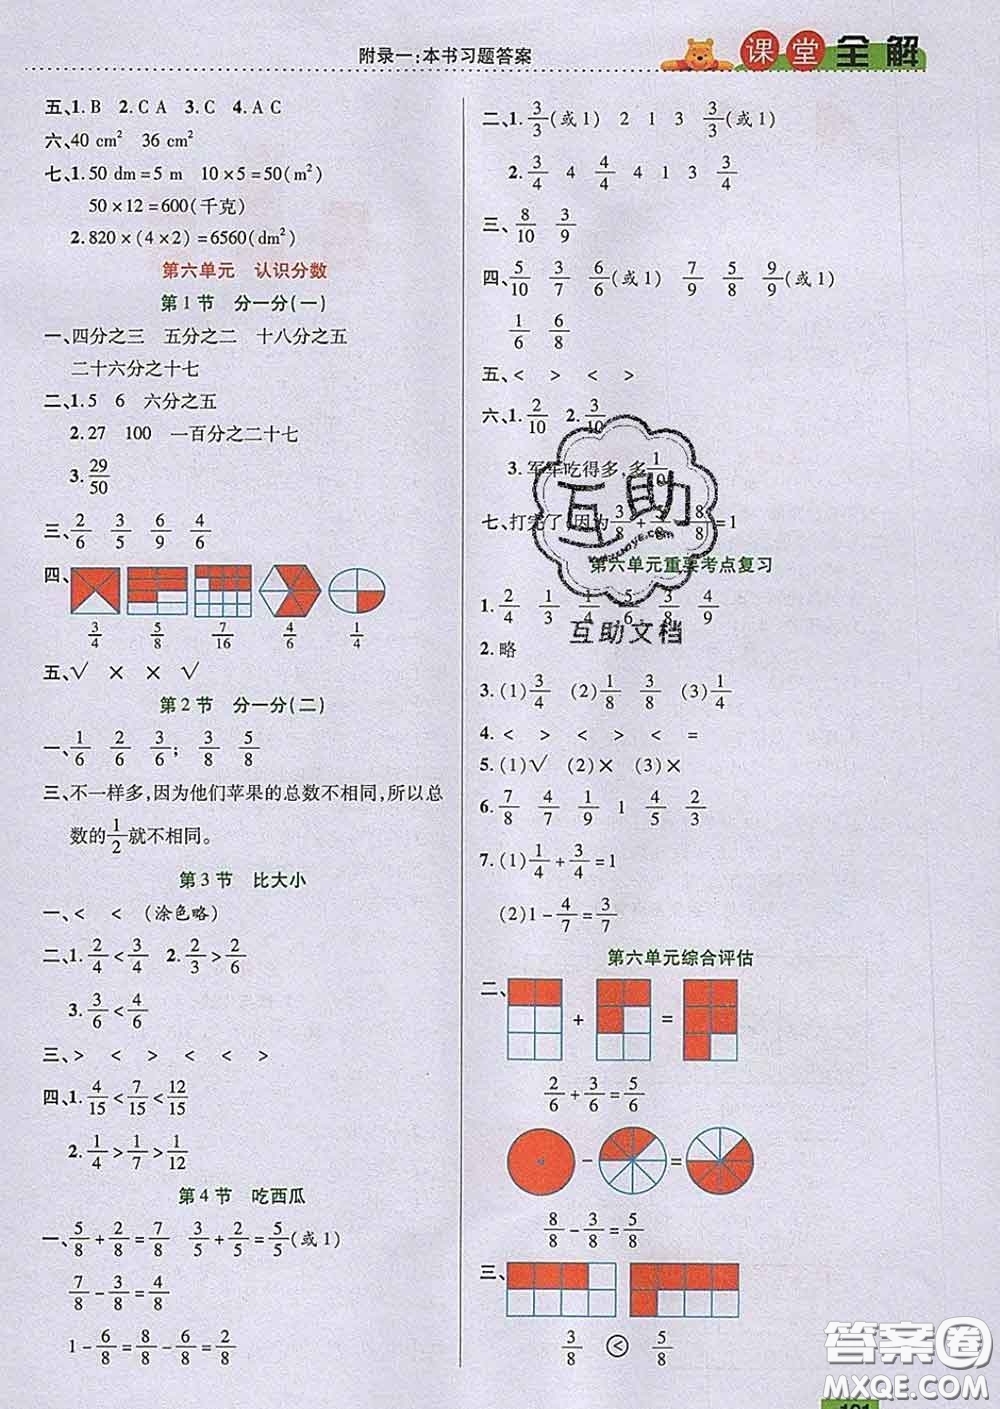 附录一:本书习题答案
课堂全解
五、1.B 2.C A 3.C 4.AC
六、40 cm² 36 cm²
七、1.50 dm=5 m 10×5=50(m²)
50×12=600(千克)
2.820×(4×2)=6560(dm²)
第六单元 认识分数
第1节 分一分(一)
一、四分之三 五分之二 十八分之五
二十六分之十七
二、1.5 6 六分之五
2.27 100 一百分之二十七
3. 29/50
三、2/6 3/5 6/9 4/6
四、
3/4 5/8 7/16 4/6 1/4
五、√ × × √
第2节 分一分(二)
一、1/6 2/6 3/6; 3/8 5/8
三、不一样多,因为他们苹果的总数不相同,所以总
数的1/2就不相同。
第3节 比大小
一、< < (涂色略)
二、1. 2/4<3/4 2. 2/3>2/6
3. 3/6<4/6
三、> < > < < >
四、1. 4/15<7/15<12/15
2. 1/4>1/7>1/12
第4节 吃西瓜
一、5/8+2/8=7/8 3/5+2/5=5/5(或1)
7/8-3/8=4/8
1-6/8=8/8-6/8=2/8
二、1. 3/3(或1) 2 1 3 3/3(或1)
2. 3/4 4 4/4 4 1 3 3/4
三、8/10 3/9
四、5/10 3/7 6/6(或1) 7/9 5/8 9/9(或1)
1/6 6/8
五、< > < >
六、1. 2/10 2. 3/10
3. 军军吃得多,多1/10
七、打完了,因为3/8+5/8=8/8=1
第六单元重要考点复习
1. 2/4 1/3 1/4 5/6 3/8 4/9
2. 略
3. (1)3/4 (2)1/8 3/8 (3)1/4
4. < > < > < =
5. (1)√ (2)× (3)×
6. 7/8 4/7 1/9 1 4/5 2/3
7. (1)1/4+3/4=1
(2)1-4/7=3/7
第六单元综合评估
二、
+ =
2/6+3/6=5/6
- =
8/8-3/8=5/8
三、
3/8 < 5/8
互助
www.huzuoye.com
互助文档
答案圈
MXQE.COM
101